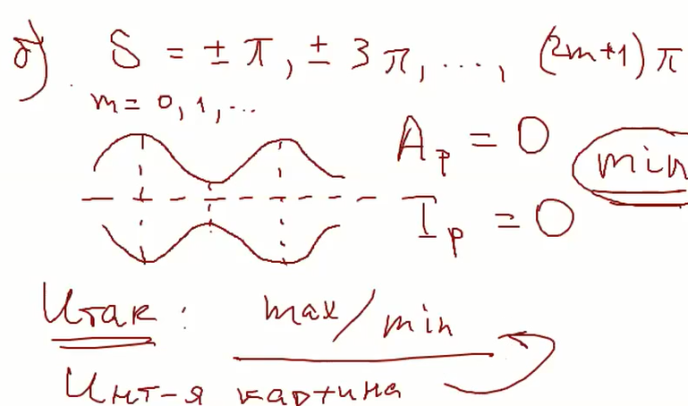 б) δ = ± π, ± 3 π, ..., (2m+1) π
m = 0, 1, ...
A_p = 0
min
I_p = 0
Итак : max/min
Инт-я картина